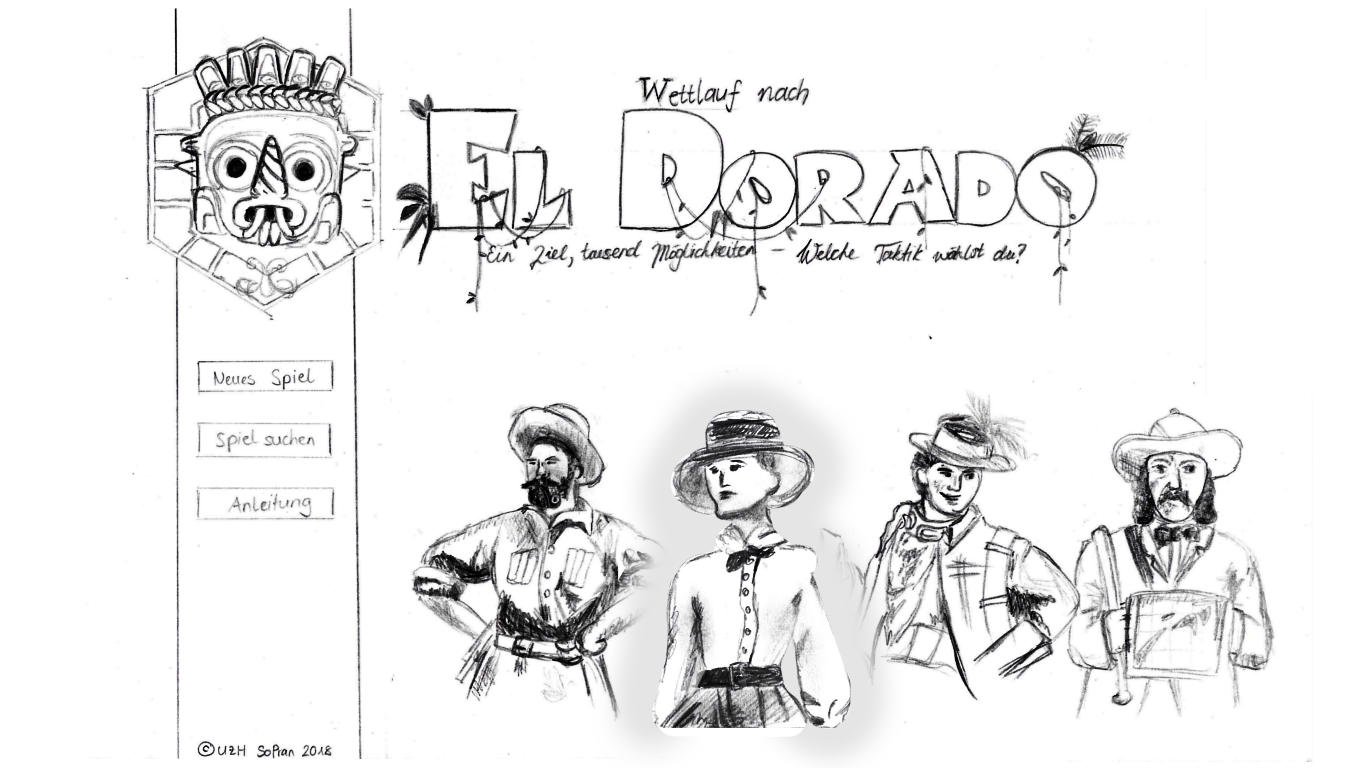 Wettlauf nach
EL DORADO
Ein Ziel, tausend Möglichkeiten – Welche Taktik wählst du?
Neues Spiel
Spiel suchen
Anleitung
© UZH SoPran 2018